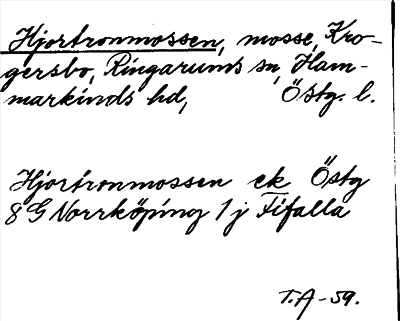 Hjortronmossen, mosse, Kro-
gersbo, Ringarums sn, Ham-
markinds hd, Östg. l.
Hjortronmossen ek Östg
8 G Norrköping 1 j Fifalla
T.A-59.